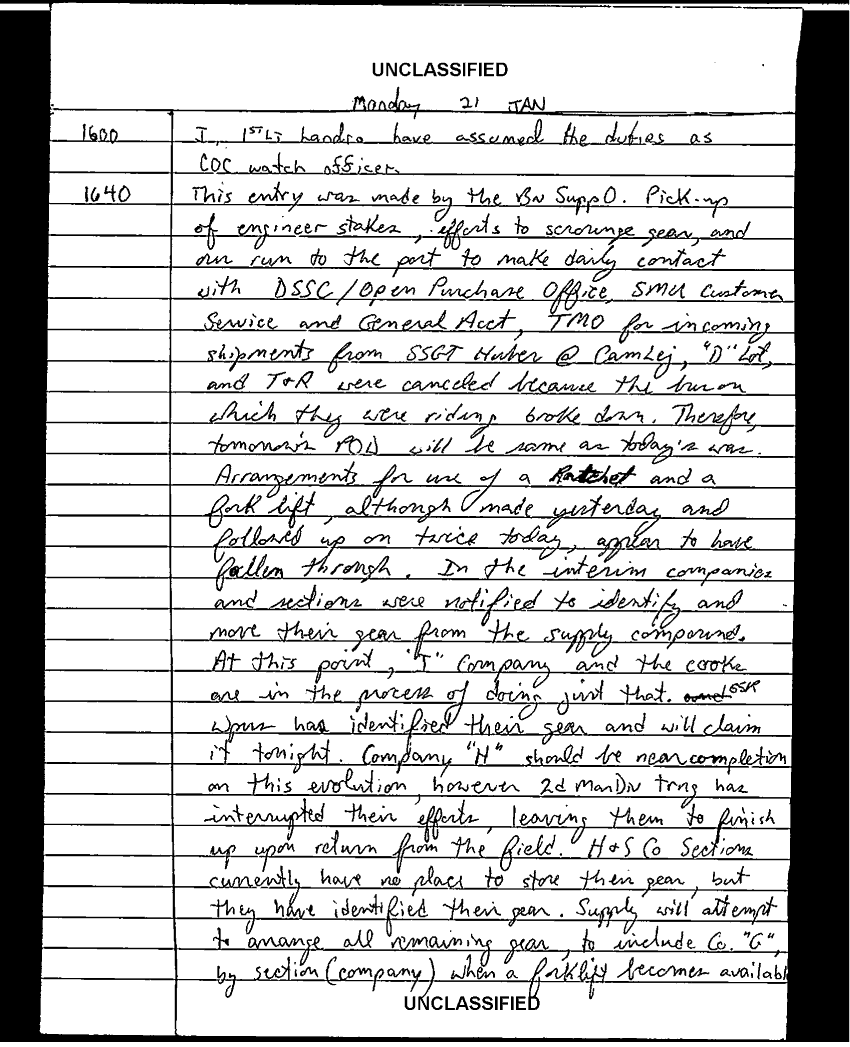 UNCLASSIFIED
Monday 21 JAN
1600 I, 1STLT Landro have assumed the duties as
COC watch officer.
1640 This entry was made by the Bn SuppO. Pick-up
of engineer stakes, efforts to scrounge gear, and
our run to the port to make daily contact
with DSSC/Open Purchase Office, SMU Customer
Service and General Acct, TMO for incoming
shipments from SSGT Huber @ CamLej, "D" Lot,
and T&R were canceled because the bus on
which they were riding broke down. Therefore,
tomorrow's POD will be same as today's was.
Arrangements for use of a Ratchet and a
fork lift, although made yesterday and
followed up on twice today, appear to have
fallen through. In the interim companies
and sections were notified to identify and
move their gear from the supply compound.
At this point, "I" Company and the cooks
are in the process of doing just that.
Wpns has identified their gear and will claim
it tonight. Company "H" should be near completion
on this evolution, however 2d MarDiv trng has
interrupted their efforts, leaving them to finish
up upon return from the field. H&S Co Sections
currently have no place to store their gear, but
they have identified their gear. Supply will attempt
to arrange all remaining gear, to include Co. "G",
by section (company) when a forklift becomes availabl
UNCLASSIFIED